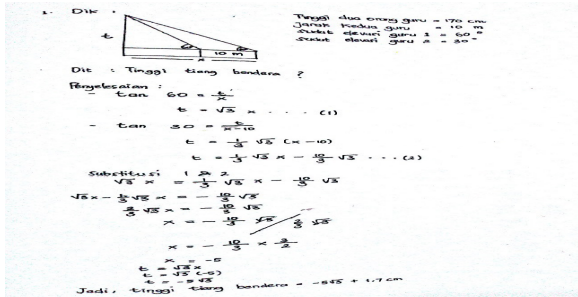 1. Dik :
t
10 m
x
Tinggi dua orang guru = 170 cm
jarak kedua guru = 10 m
sudut elevasi guru 1 = 60°
sudut elevasi guru 2 = 30°
Dit : Tinggi tiang bendera ?
Penyelesaian :
- tan 60 = t/x
t = √3 x ... (1)
- tan 30 = t/x-10
t = 1/3 √3 (x-10)
t = 1/3 √3 x - 10/3 √3 ... (2)
Substitusi 1 & 2
√3 x = 1/3 √3 x - 10/3 √3
√3 x - 1/3 √3 x = - 10/3 √3
2/3 √3 x = - 10/3 √3
x = - 10/3 √3 / 2/3 √3
x = - 10/3 x 3/2
x = -5
t = √3 x
t = √3 (-5)
t = -5√3
Jadi, tinggi tiang bendera = -5√3 + 1.7 cm